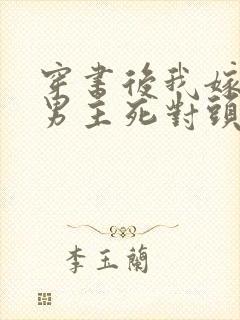 穿書後我嫁
男主死對頭
李玉蘭